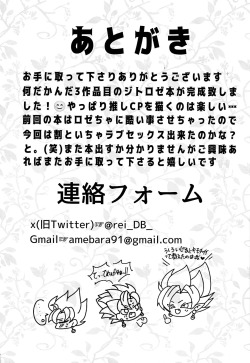 あとがき
お手に取って下さりありがとうございます
何だかんだ3作品目のジトロゼ本が完成致しま
した！😊やっぱり推しCPを描くのは楽しい…
前回の本はロゼちゃに酷い事させちゃったので
今回は割といちゃラブセックス出来たのかな？
と。(笑)また本出すか分かりませんがご興味あ
ればまたお手に取って下さると嬉しいです
連絡フォーム
x(旧Twitter)☞@rei_DB_
Gmail☞amebara91@gmail.com